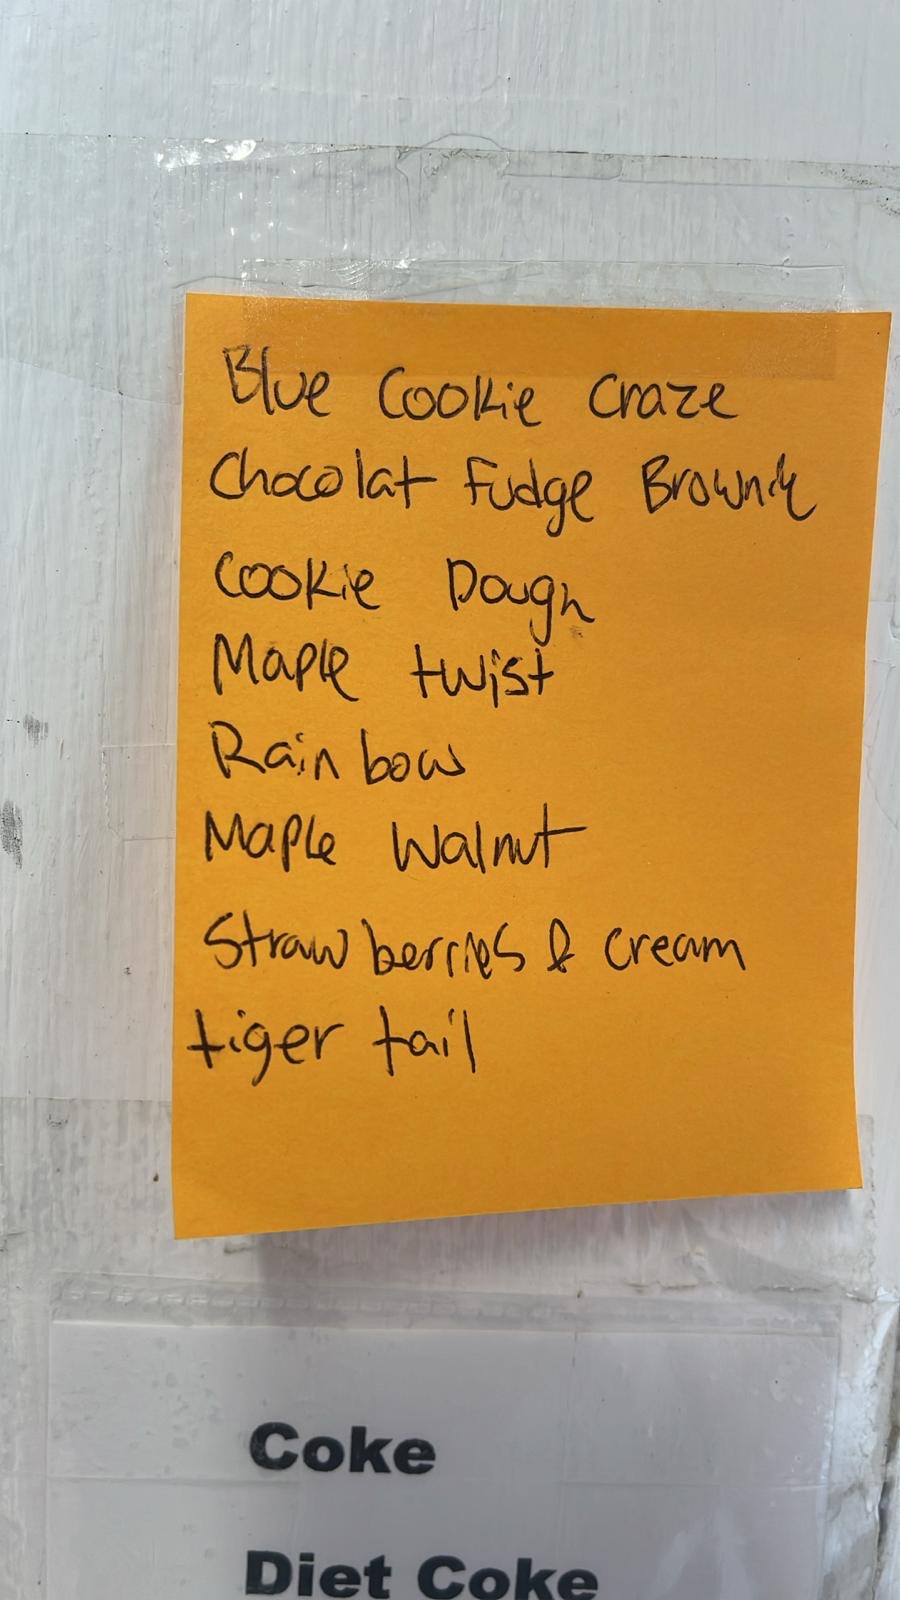 Blue Cookie Craze
Chocolat Fudge Brownie
Cookie Dough
Maple twist
Rainbow
Maple Walnut
Strawberries & cream
tiger tail
Coke
Diet Coke